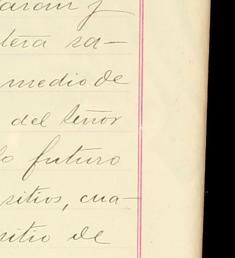 y
tera sa-
medio de
del Señor
lo futuro
sitios, cua-
sitio de